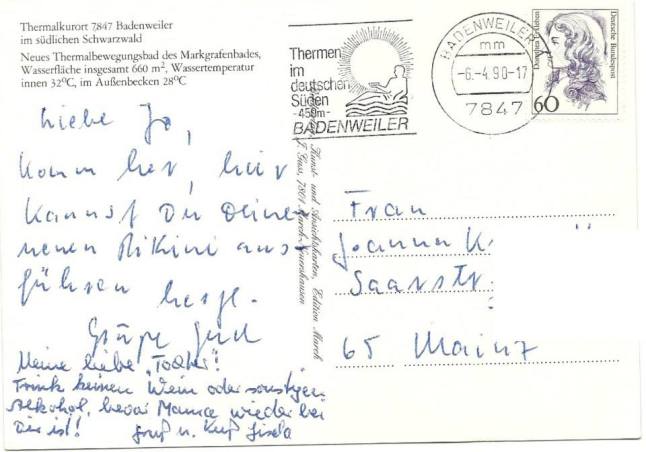 Thermalkurort 7847 Badenweiler
im südlichen Schwarzwald
Neues Thermalbewegungsbad des Markgrafenbades,
Wasserfläche insgesamt 660 m², Wassertemperatur
innen 32°C, im Außenbecken 28°C
Thermen
im
deutschen
Süden
-450m-
BADENWEILER
BADENWEILER
mm
-6.-4.90-17
7847
Deutsche Bundespost
60
Liebe Jo,
komm her, hier
kannst Du Deinen
neuen Bikini aus-
führen
Grüße
Meine liebe "Tochter"!
Trink keinen Wein oder sonstigen
Alkohol, bevor Mama wieder bei
Dir ist!
Gruß u. Kuß Gisela
Kunst- und Ansichtskarten, Edition March
Frau
Joanna K
Saarstr.
65 Mainz